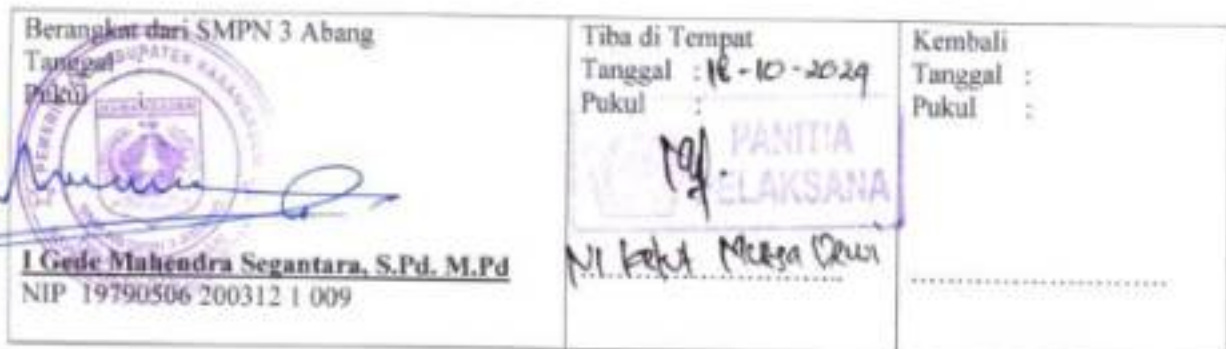 Berangkat dari SMPN 3 Abang
Tanggal :
Pukul :
I Gede Mahendra Segantara, S.Pd. M.Pd
NIP 19790506 200312 1 009
Tiba di Tempat
Tanggal : 18-10-2024
Pukul :
PANITIA
PELAKSANA
Ni Ketut Dewi
Kembali
Tanggal :
Pukul :